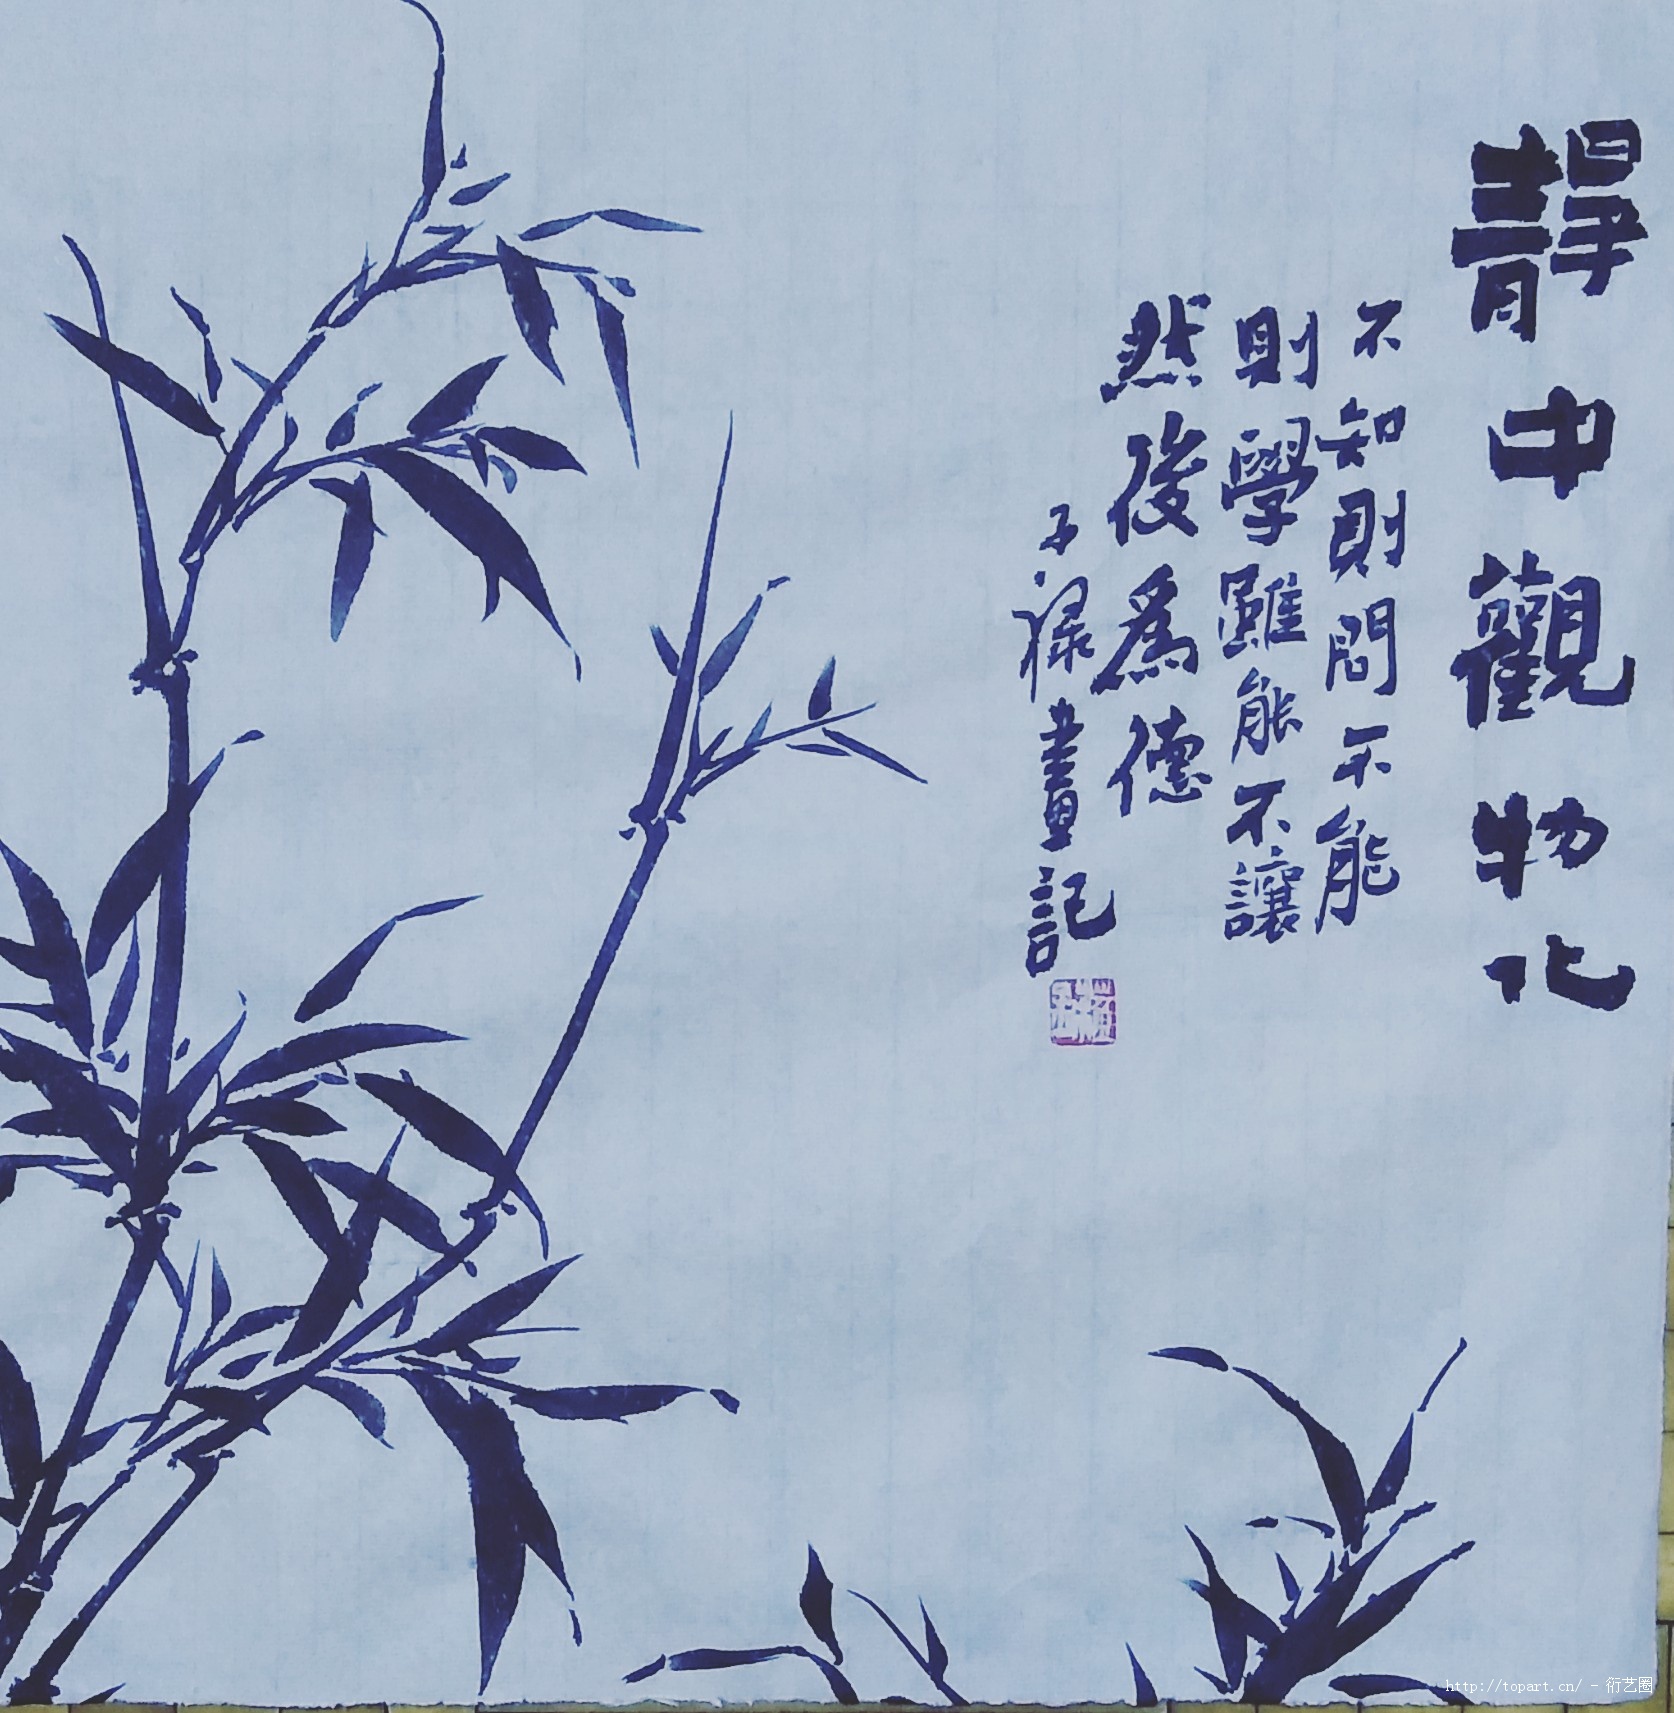 靜中觀物化
不知則問不能
則學雖能不讓
然後爲德
子禄畫記
http://topart.cn/ - 衍艺圈